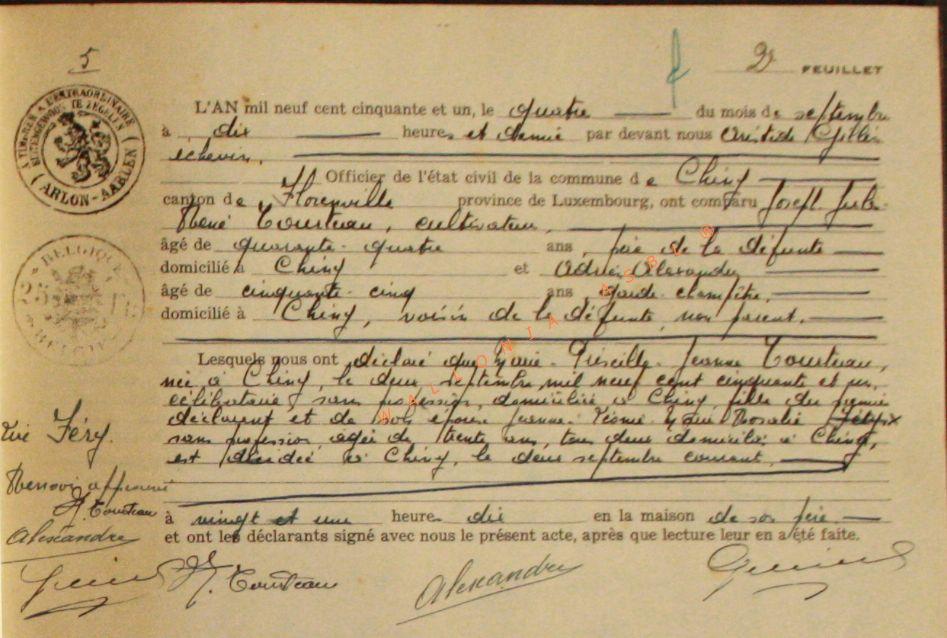 5
2d FEUILLET
A TIMBRER A L'EXTRAORDINAIRE
BUITENGEWOON TE ZEGELEN
ARLON-AARLEN
BELGIQUE
BELGIE
L'AN mil neuf cent cinquante et un, le quatre du mois de septembre
à dix heures et demie par devant nous Aristide
échevin,
Officier de l'état civil de la commune de Chiny
canton de Florenville province de Luxembourg, ont comparu Joseph Jules
René Tourteau, cultivateur,
âgé de quarante-quatre ans père de la défunte
domicilié à Chiny et Adrien Alexandre
âgé de cinquante-cinq ans garde-champêtre,
domicilié à Chiny, voisin de la défunte, non parent.
Lesquels nous ont déclaré que Marie-Priscille-Jeanne Tourteau,
née à Chiny, le deux septembre mil neuf cent cinquante et un,
célibataire, sans profession, domiciliée à Chiny fille du premier
déclarant et de son épouse Jeanne Marie Rosalie
sans profession, âgée de trente ans, tous deux domiciliés à Chiny,
est décédée à Chiny, le deux septembre courant,
à vingt et une heures dix en la maison de son père
et ont les déclarants signé avec nous le présent acte, après que lecture leur en a été faite.
Féry.
Renvoi approuvé
J. Tourteau
Alexandre
J. Tourteau
Alexandre
WALLONIA ASBL